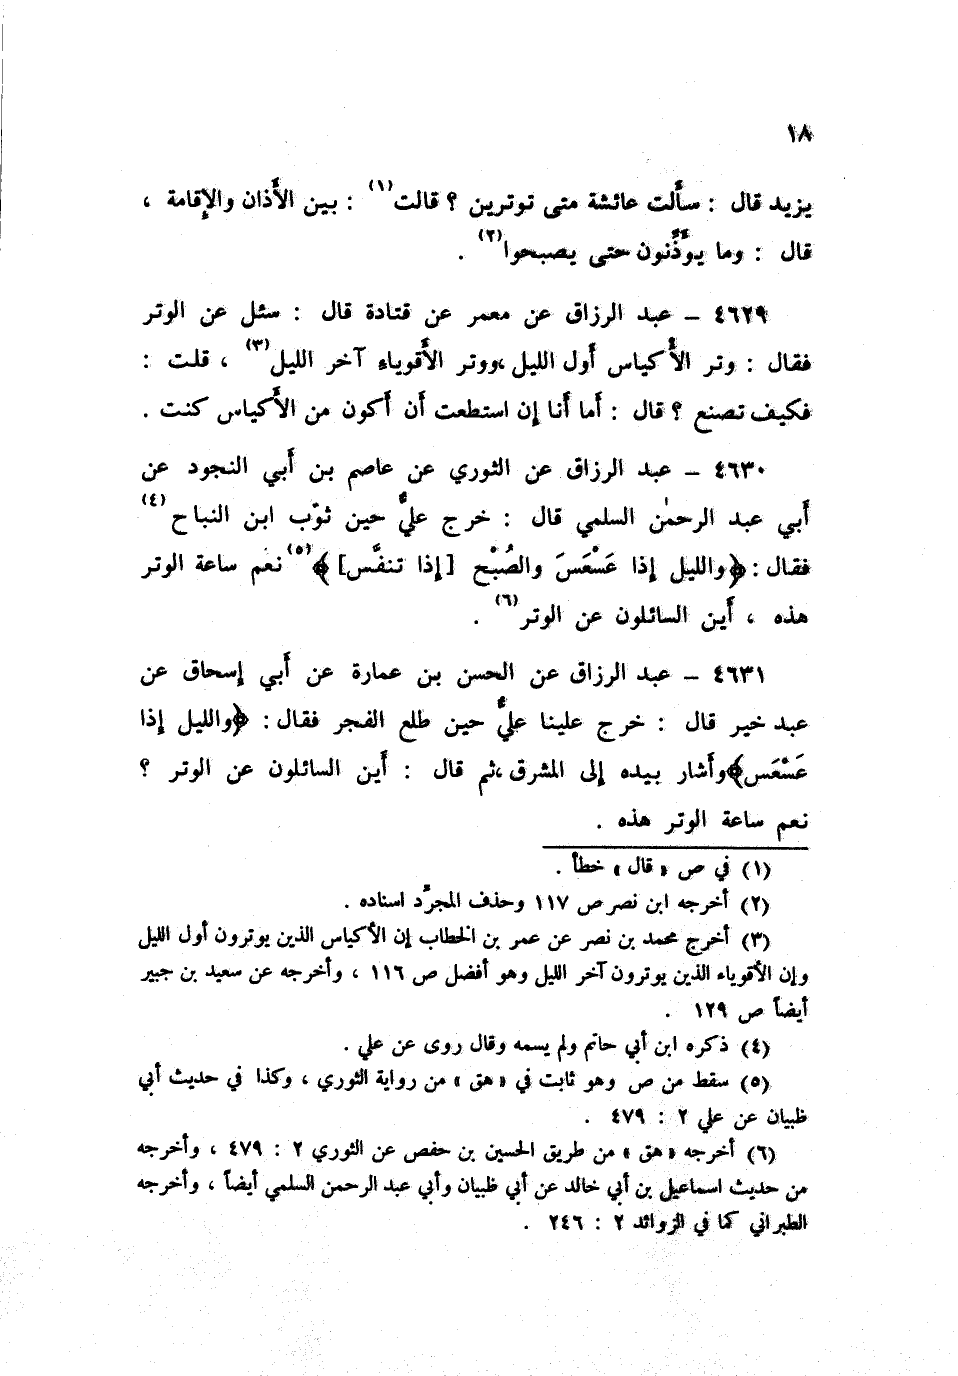 ١٨
يزيد قال : سأَلت عائشة متى توترين ؟ قالت(١) : بين الأَذان والإِقامة ،
قال : وما يؤَذِّنون حتى يصبحوا(٢) .
٤٦٢٩ – عبد الرزاق عن معمر عن قتادة قال : سئل عن الوتر
فقال : وتر الأَكياس أَول الليل ، ووتر الأَقوياء آخر الليل(٣) ، قلت :
فكيف تصنع ؟ قال : أَما أَنا إِن استطعت أَن أَكون من الأَكياس كنت .
٤٦٣٠ – عبد الرزاق عن الثوري عن عاصم بن أَبي النجود عن
أَبي عبد الرحمٰن السلمي قال : خرج عليٌّ حين ثوّب ابن النباح(٤)
فقال : ﴿والليل إِذا عَسْعَسَ والصُبْح [إِذا تنفَّس]﴾(٥) نعم ساعة الوتر
هذه ، أَين السائلون عن الوتر(٦) .
٤٦٣١ – عبد الرزاق عن الحسن بن عمارة عن أَبي إِسحاق عن
عبد خير قال : خرج علينا عليٌّ حين طلع الفجر فقال : ﴿والليل إِذا
عَسْعَس﴾ وأَشار بيده إِلى المشرق ، ثم قال : أَين السائلون عن الوتر ؟
نعم ساعة الوتر هذه .
(١) في ص « قال » خطأ .
(٢) أخرجه ابن نصر ص ١١٧ وحذف المجرّد اسناده .
(٣) أخرج محمد بن نصر عن عمر بن الخطاب إن الأكياس الذين يوترون أول الليل
وإن الأقوياء الذين يوترون آخر الليل وهو أفضل ص ١١٦ ، وأخرجه عن سعيد بن جبير
أيضاً ص ١٢٩ .
(٤) ذكره ابن أبي حاتم ولم يسمه وقال روى عن علي .
(٥) سقط من ص وهو ثابت في « هق » من رواية الثوري ، وكذا في حديث أبي
ظبيان عن علي ٢ : ٤٧٩ .
(٦) أخرجه « هق » من طريق الحسين بن حفص عن الثوري ٢ : ٤٧٩ ، وأخرجه
من حديث اسماعيل بن أبي خالد عن أبي ظبيان وأبي عبد الرحمن السلمي أيضاً ، وأخرجه
الطبراني كما في الزوائد ٢ : ٢٤٦ .